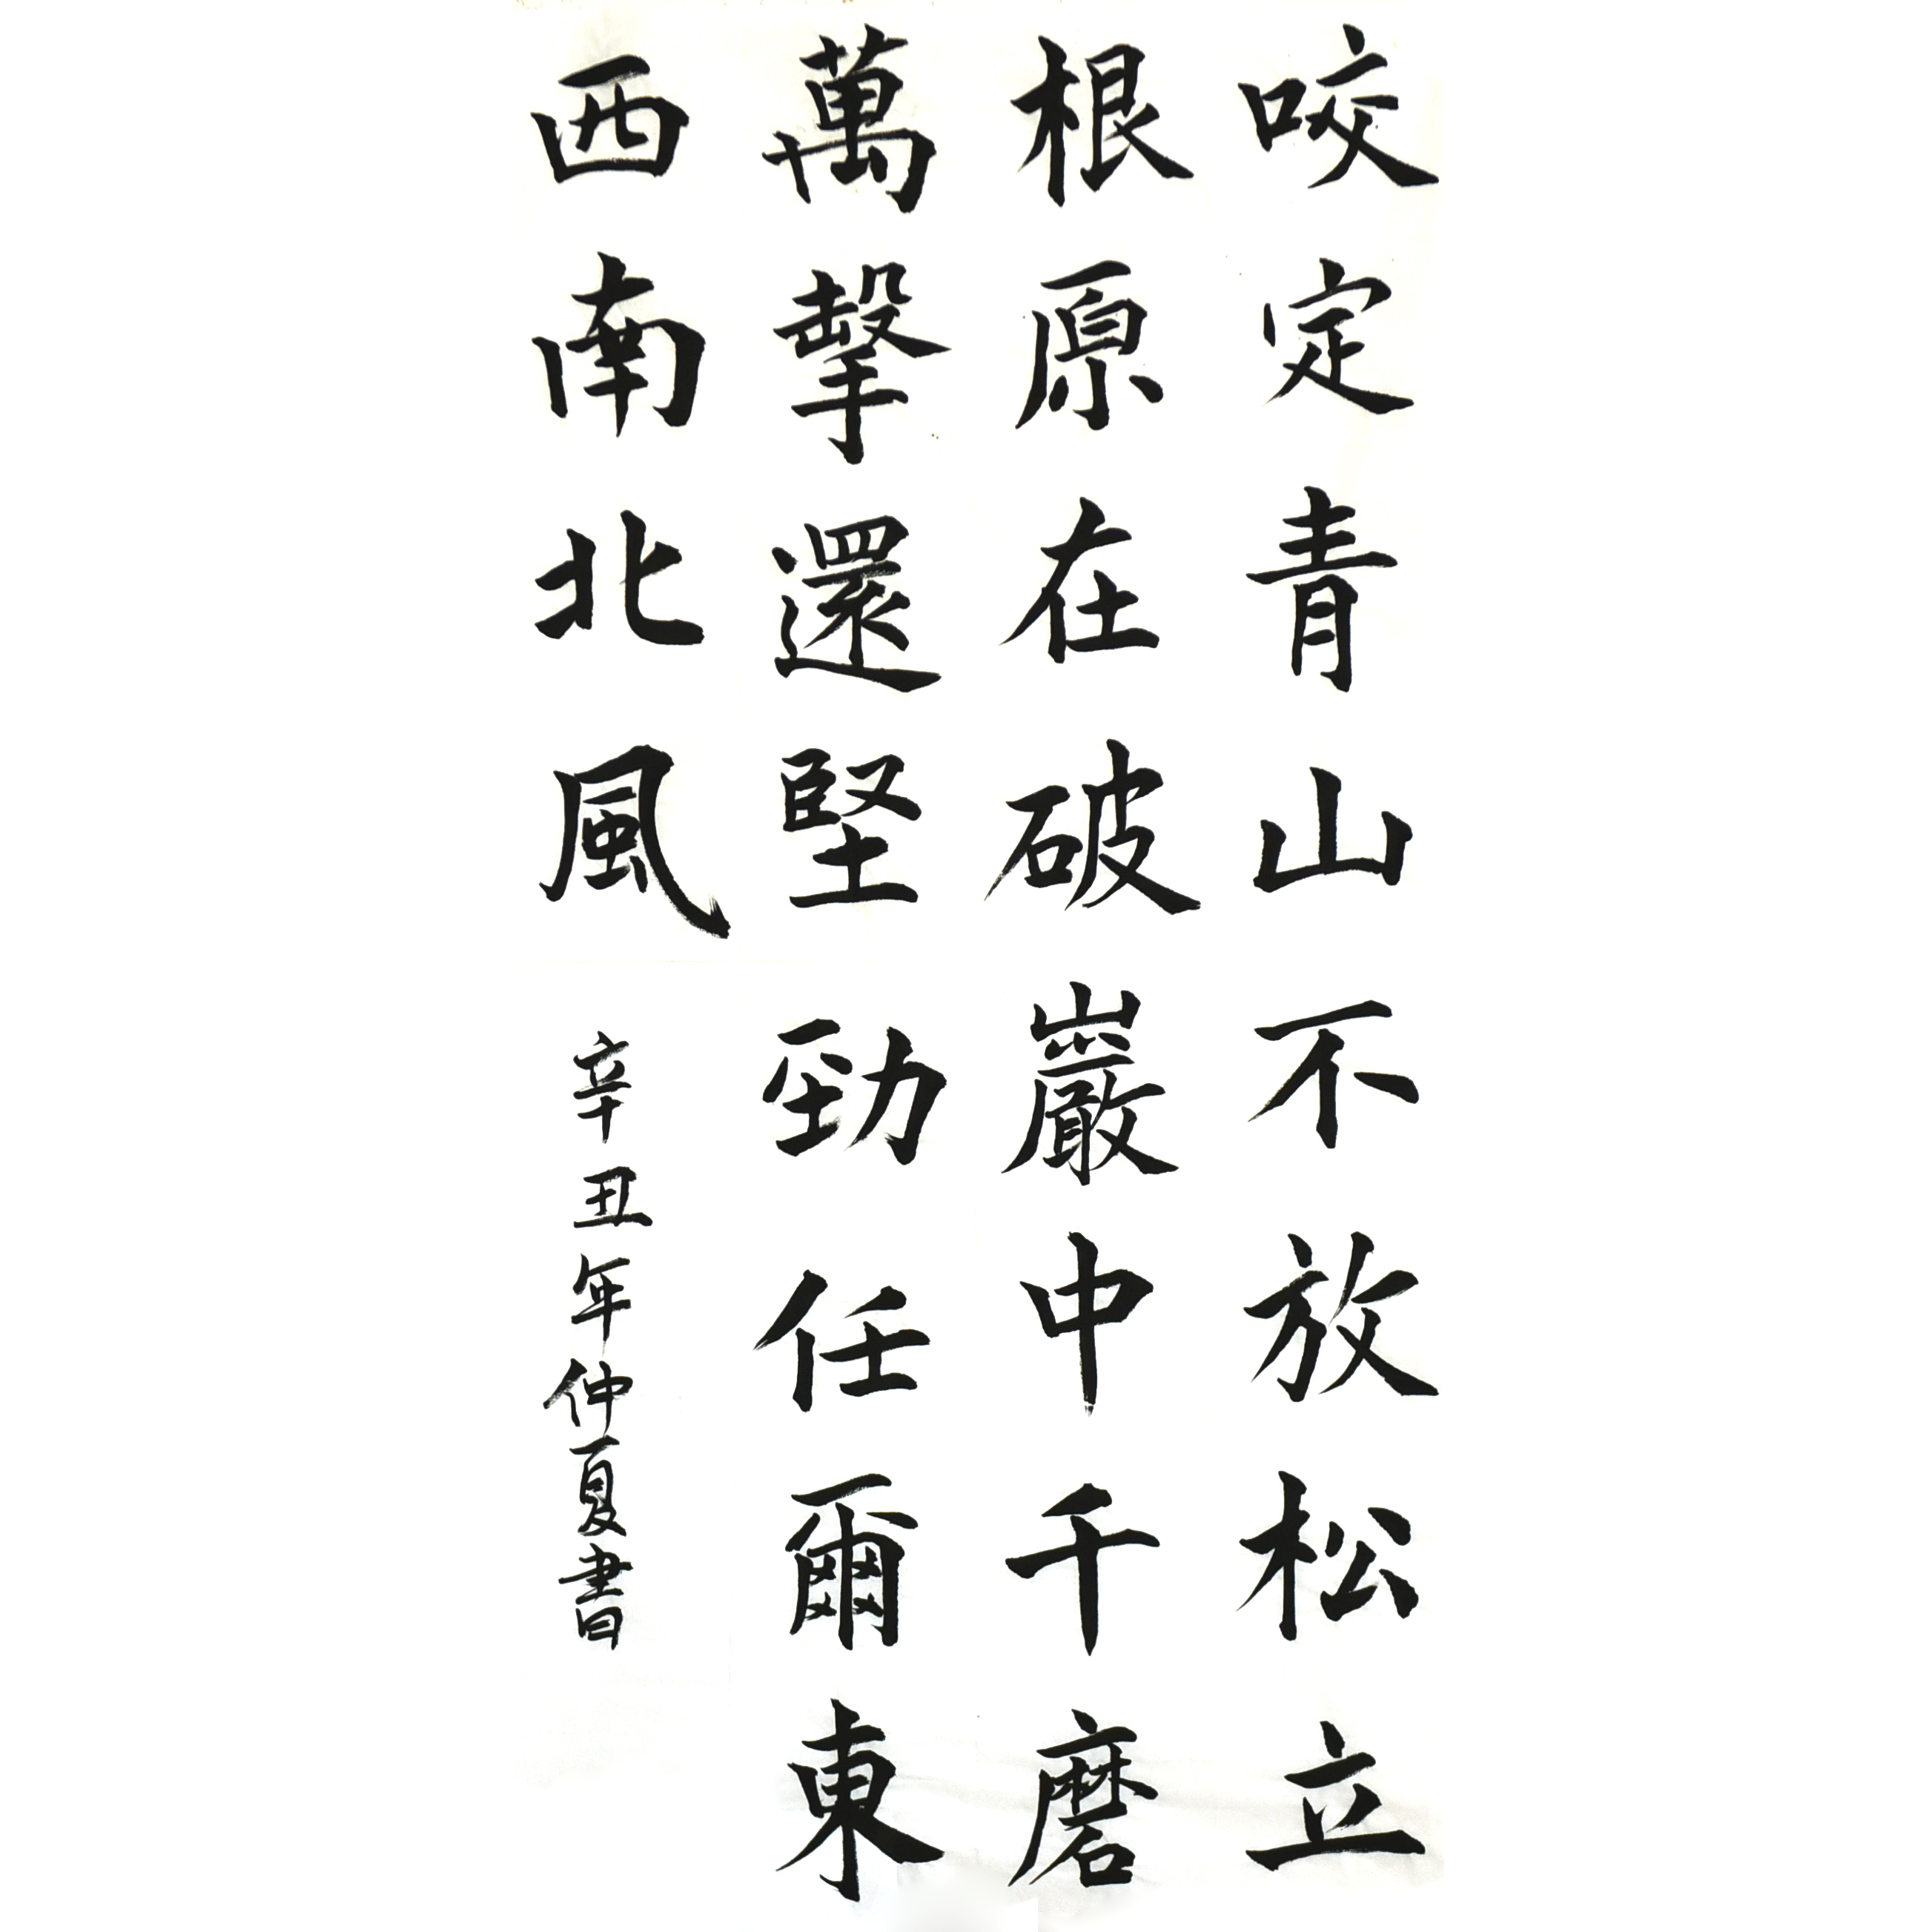 咬定青山不放松立
根原在破巖中千磨
萬擊還堅勁任爾東
西南北風
辛丑年仲夏書